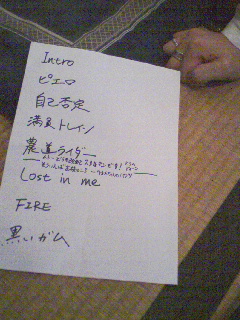 Intro
ピエロ
自己否定
満員トレイン
農道ライダー
Lost in me
FIRE
黒いガム